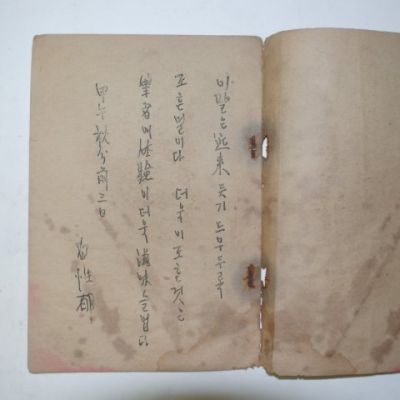 이말은近來 듯기 드무두록
조흔말이다 더욱이조흔것은
体驗이더욱滋味
甲午秋分前三日
白性郁